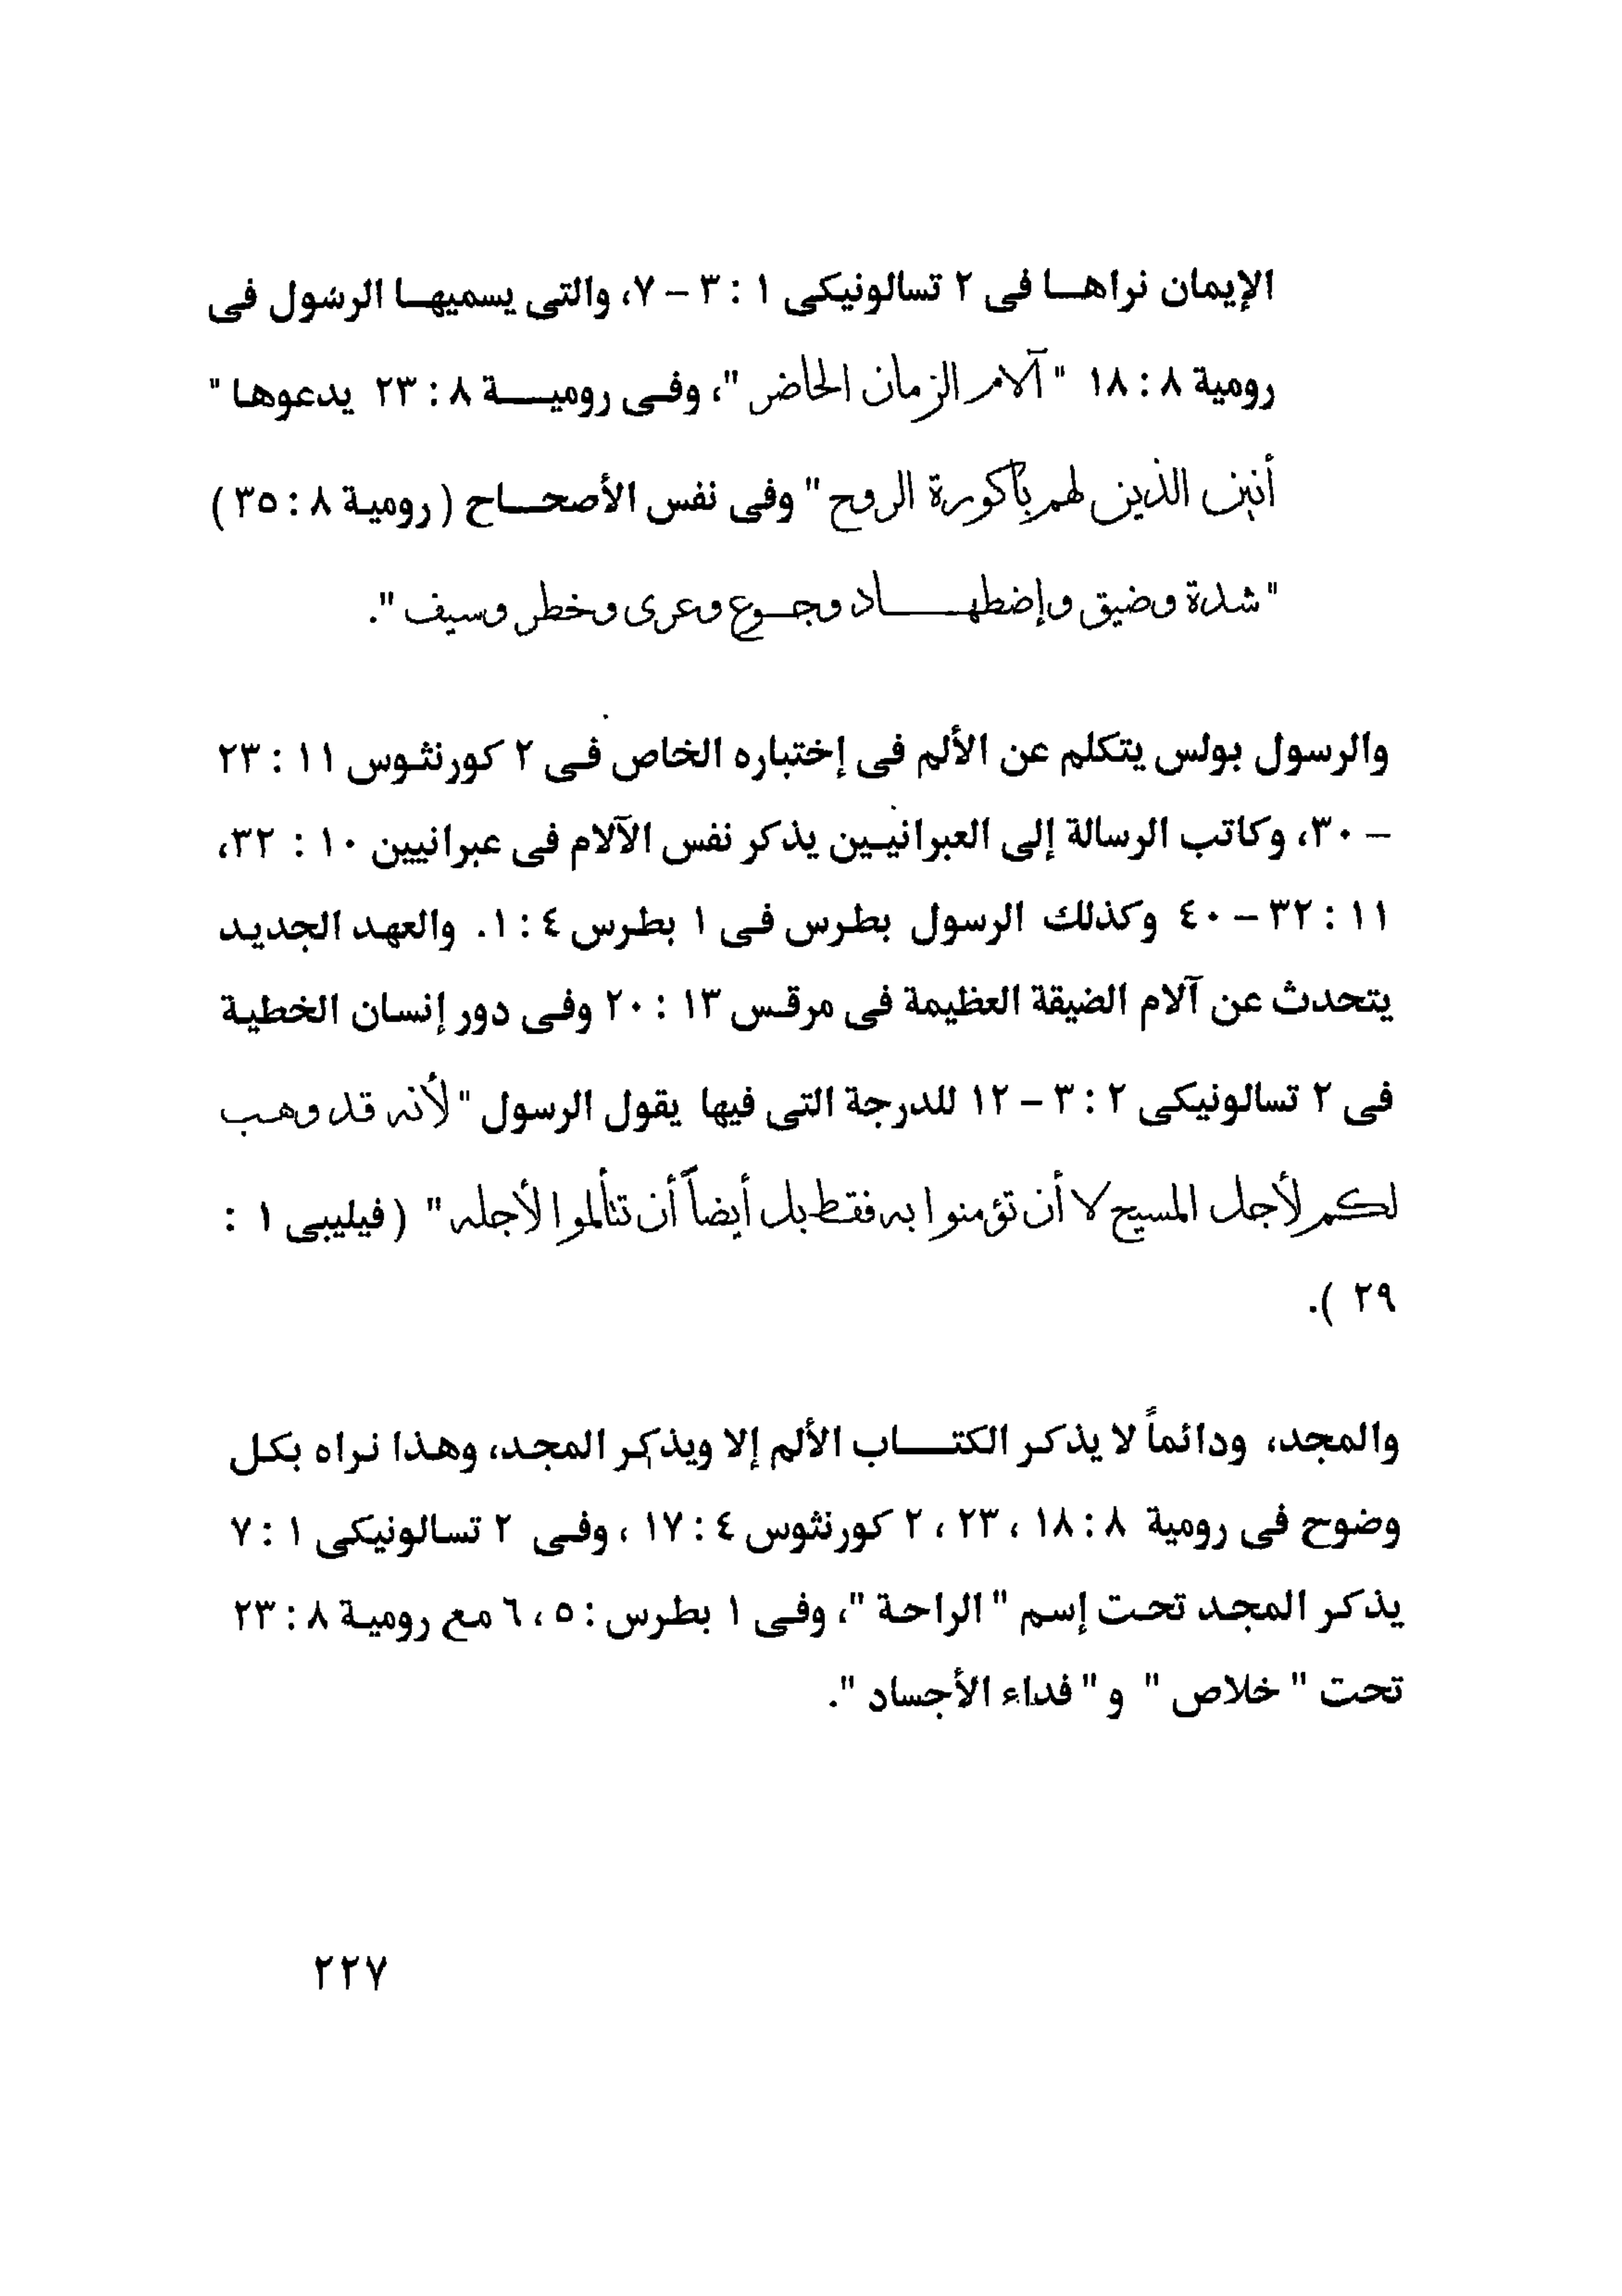 الإيمان نراهـا فى ٢ تسالونيكى ١ : ٣ – ٧، والتى يسميهـا الرسول فى
رومية ٨ : ١٨ " آلام الزمان الحاضر "، وفـى روميــة ٨ : ٢٣ يدعوهـا "
أنين الذين لهم باكورة الروح " وفى نفس الأصحـاح ( رومية ٨ : ٣٥ )
" شدة وضيق وإضطهـــاد وجـوع وعرى وخطر وسيف ".
والرسول بولس يتكلم عن الألم فى إختباره الخاص فـى ٢ كورنثـوس ١١ : ٢٣
– ٣٠، وكاتب الرسالة إلى العبرانيـين يذكر نفس الآلام فى عبرانيين ١٠ : ٣٢،
١١ : ٣٢ – ٤٠ وكذلك الرسول بطرس فـى ١ بطرس ٤ : ١. والعهد الجديد
يتحدث عن آلام الضيقة العظيمة فى مرقـس ١٣ : ٢٠ وفـى دور إنسان الخطية
فى ٢ تسالونيكى ٢ : ٣ – ١٢ للدرجة التى فيها يقول الرسول " لأنه قد وهـب
لكم لأجل المسيح لا أن تؤمنوا به فقط بل أيضاً أن تتألموا لأجله " ( فيليبى ١ :
٢٩ ).
والمجد، ودائماً لا يذكر الكتـــاب الألم إلا ويذكر المجد، وهذا نـراه بكـل
وضوح فى رومية ٨ : ١٨ ، ٢٣ ، ٢ كورنثوس ٤ : ١٧ ، وفـى ٢ تسالونيكى ١ : ٧
يذكر المجد تحـت إسم " الراحة "، وفـى ١ بطرس : ٥ ، ٦ مـع رومية ٨ : ٢٣
تحت " خلاص " و " فداء الأجساد ".
٢٢٧